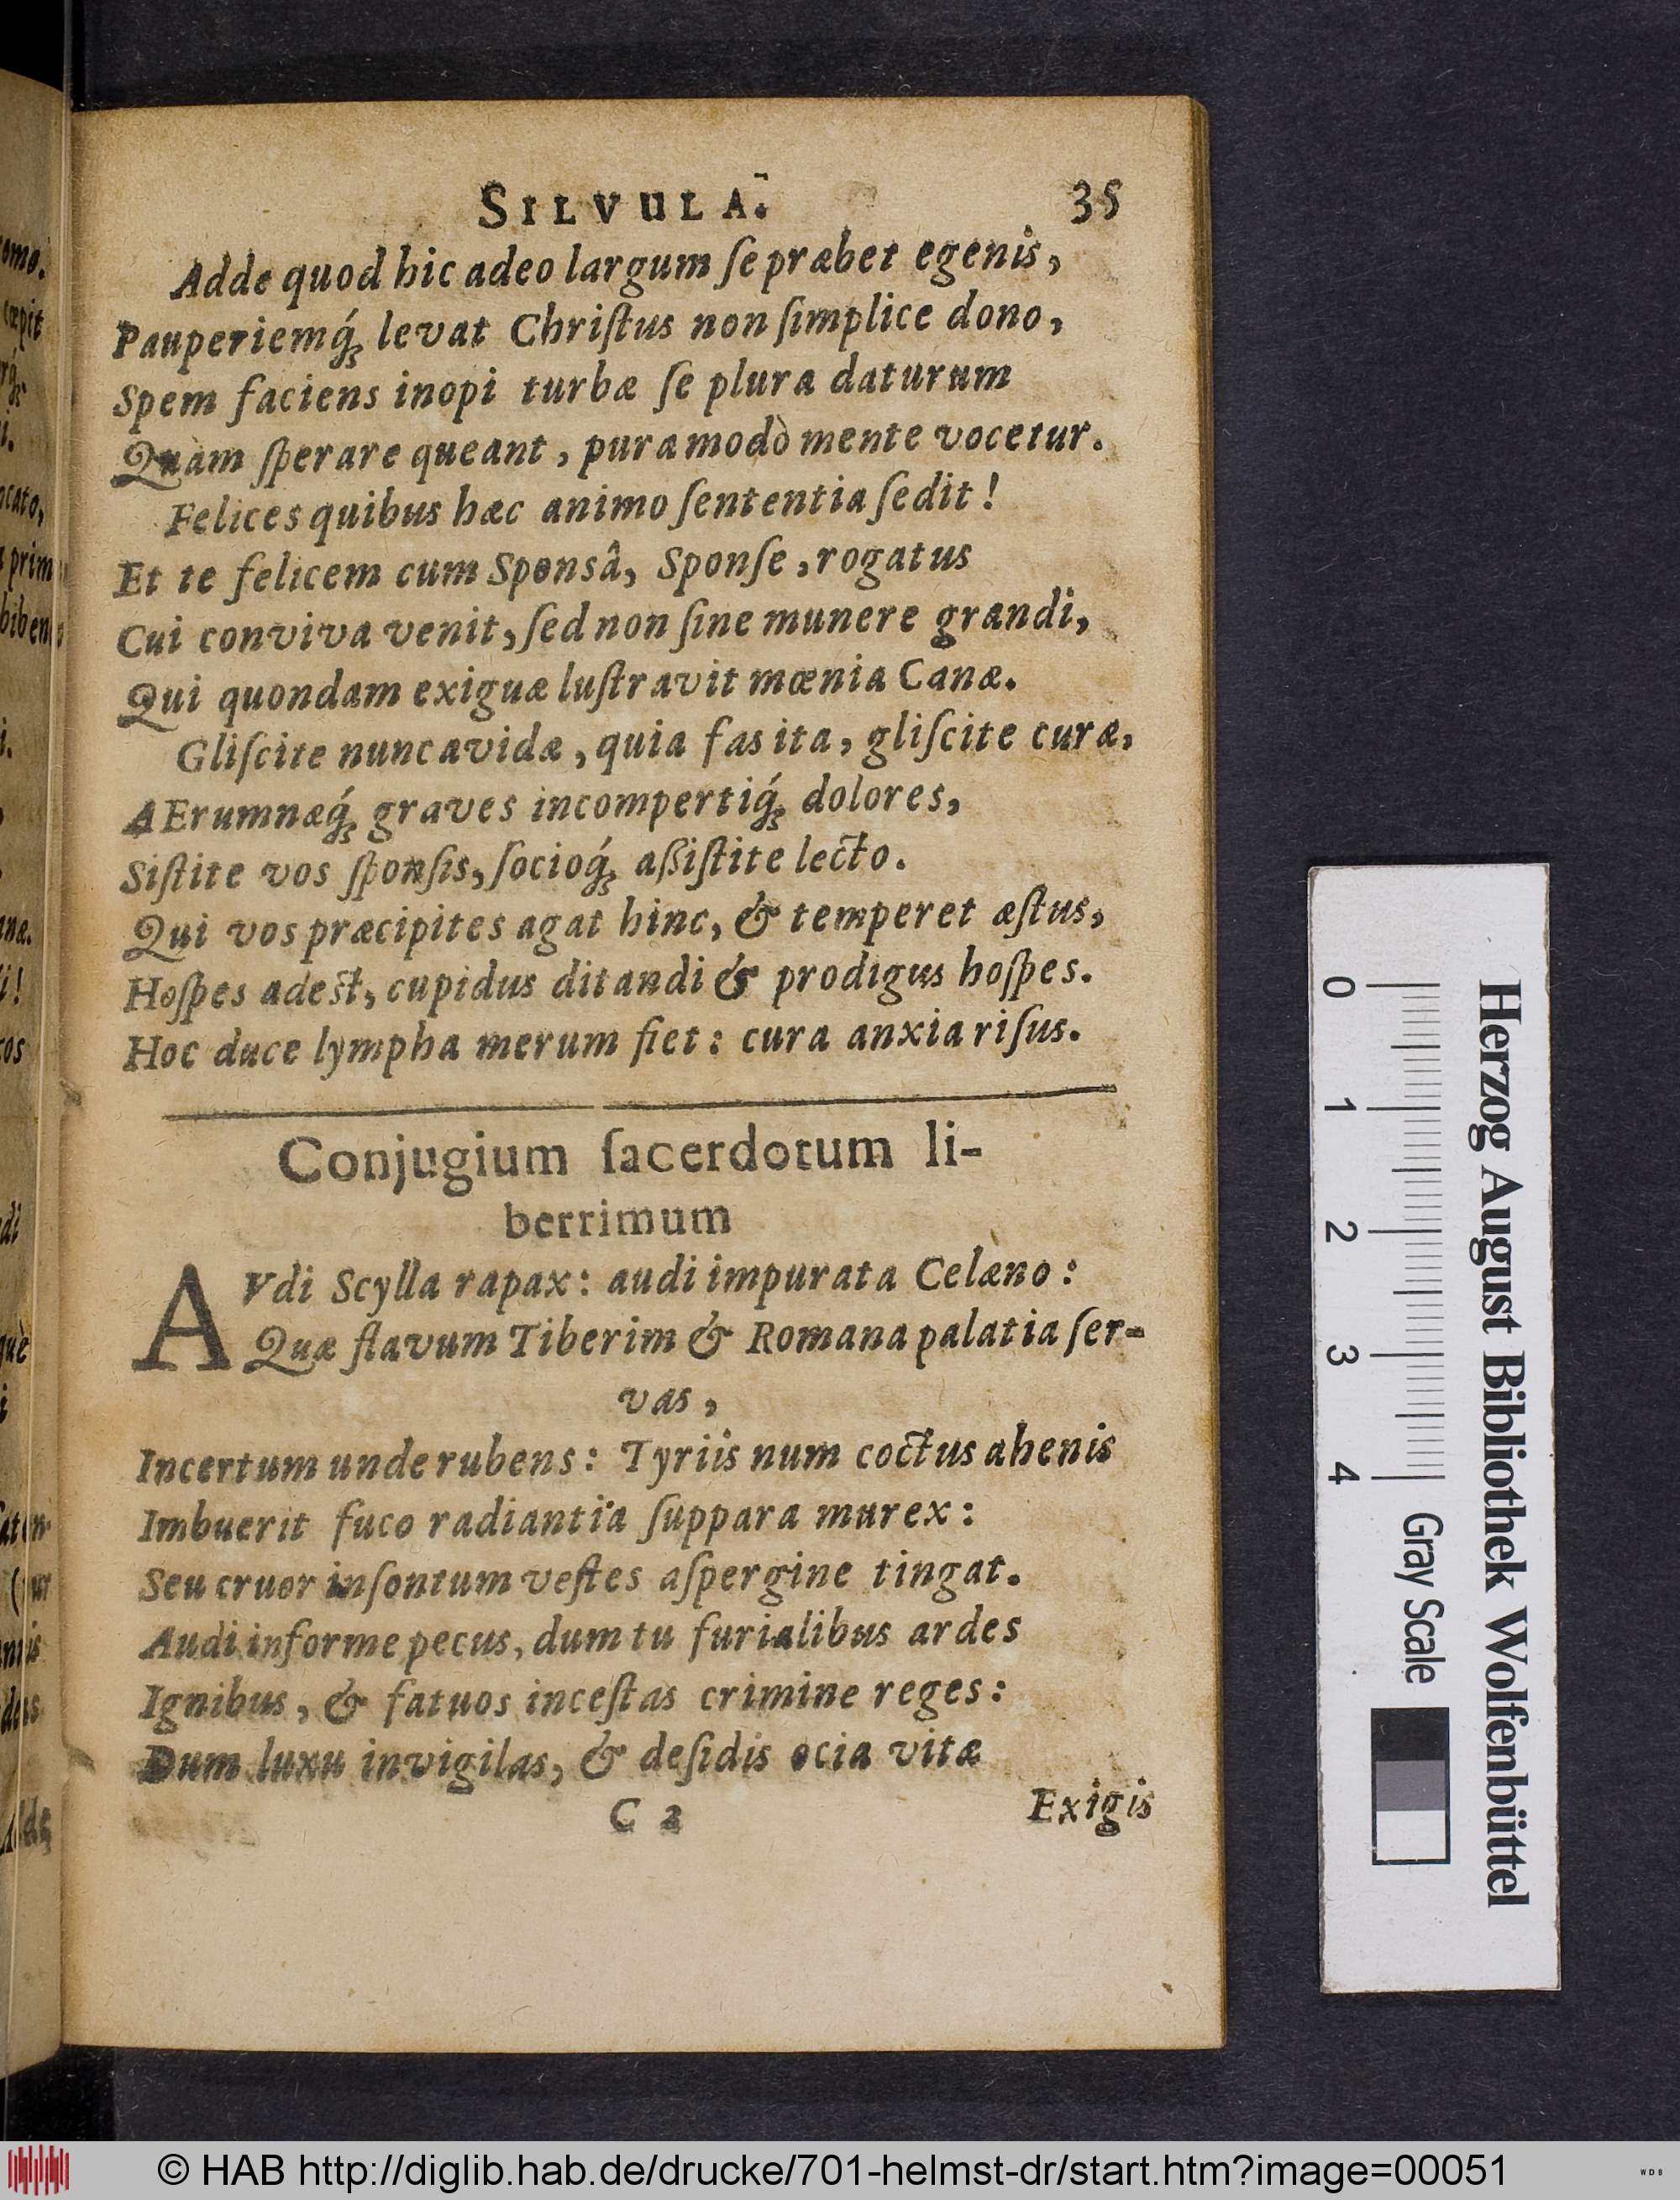 SILVULA. 35
Adde quod hic adeo largum ſe præbet egenis,
Pauperiemq́; levat Chriſtus non ſimplice dono,
Spem faciens inopi turbæ ſe plura daturum
Quàm ſperare queant, pura modò mente vocetur.
Felices quibus hæc animo ſententia ſedit!
Et te felicem cum Sponsâ, Sponſe, rogatus
Cui conviva venit, ſed non ſine munere grandi,
Qui quondam exiguæ luſtravit mœnia Canæ.
Gliſcite nunc avidæ, quia fas ita, gliſcite curæ,
AErumnæq́; graves incompertiq́; dolores,
Siſtite vos ſponſis, ſocioq́; aßiſtite lecto.
Qui vos præcipites agat hinc, & temperet æſtus,
Hoſpes adest, cupidus ditandi & prodigus hoſpes.
Hoc duce lympha merum fiet: cura anxia riſus.
Conjugium ſacerdotum li-
berrimum
AVdi Scylla rapax: audi impurata Celæno:
Quæ flavum Tiberim & Romana palatia ſer-
vas,
Incertum unde rubens: Tyriis num coctus ahenis
Imbuerit fuco radiantia ſuppara murex:
Seu cruor inſontum veſtes aſpergine tingat.
Audi informe pecus, dum tu furialibus ardes
Ignibus, & fatuos inceſtas crimine reges:
Dum luxu invigilas, & deſidis ocia vitæ
C 2 Exigis
Herzog August Bibliothek Wolfenbüttel
0 1 2 3 4 Gray Scale
© HAB http://diglib.hab.de/drucke/701-helmst-dr/start.htm?image=00051
WDB